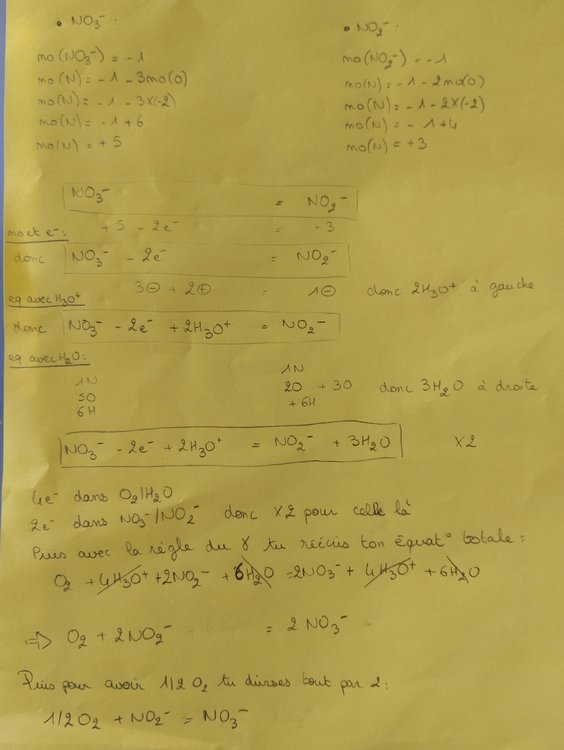 • NO₃⁻ :
mo(NO₃⁻) = -1
mo(N) = -1 - 3mo(O)
mo(N) = -1 - 3×(-2)
mo(N) = -1 + 6
mo(N) = +5
• NO₂⁻ :
mo(NO₂⁻) = -1
mo(N) = -1 - 2mo(O)
mo(N) = -1 - 2×(-2)
mo(N) = -1 + 4
mo(N) = +3
NO₃⁻ = NO₂⁻
mo et e⁻ : +5 - 2e⁻ = +3
donc NO₃⁻ - 2e⁻ = NO₂⁻
3⊖ + 2⊕ = 1⊖ donc 2H₃O⁺ à gauche
eq avec H₃O⁺
donc NO₃⁻ - 2e⁻ + 2H₃O⁺ = NO₂⁻
eq avec H₂O :
1N 1N
5O 2O + 3O donc 3H₂O à droite
6H + 6H
NO₃⁻ - 2e⁻ + 2H₃O⁺ = NO₂⁻ + 3H₂O ×2
4e⁻ dans O₂/H₂O
2e⁻ dans NO₃⁻/NO₂⁻ donc ×2 pour celle là
Puis avec la règle du γ tu réécris ton équat° totale :
O₂ + 4H₃O⁺ + 2NO₂⁻ + 6H₂O = 2NO₃⁻ + 4H₃O⁺ + 6H₂O
⇒ O₂ + 2NO₂⁻ = 2 NO₃⁻
Puis pour avoir 1/2 O₂ tu divises tout par 2 :
1/2 O₂ + NO₂⁻ = NO₃⁻